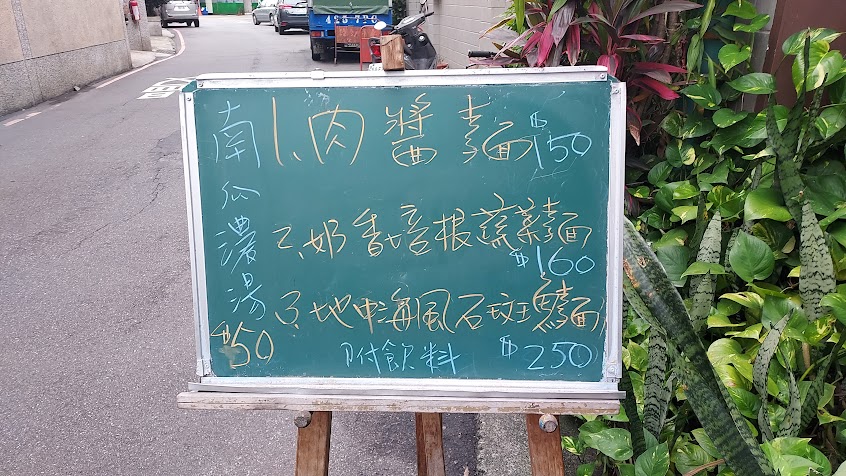 南瓜濃湯
$50
1、肉醬麵 $150
2、奶香培根蔬菜麵
$160
3、地中海風石斑麵
附飲料 $250